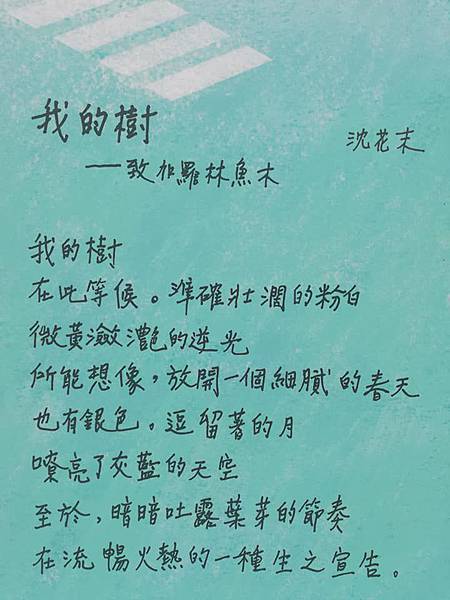 我的樹
沈花末
——致加羅林魚木
我的樹
在此等候。準確壯濶的粉白
微黃瀲灧的逆光
所能想像，放開一個細膩的春天
也有銀色。逗留著的月
嘹亮了灰藍的天空
至於，暗暗吐露葉芽的節奏
在流暢火熱的一種生之宣告。